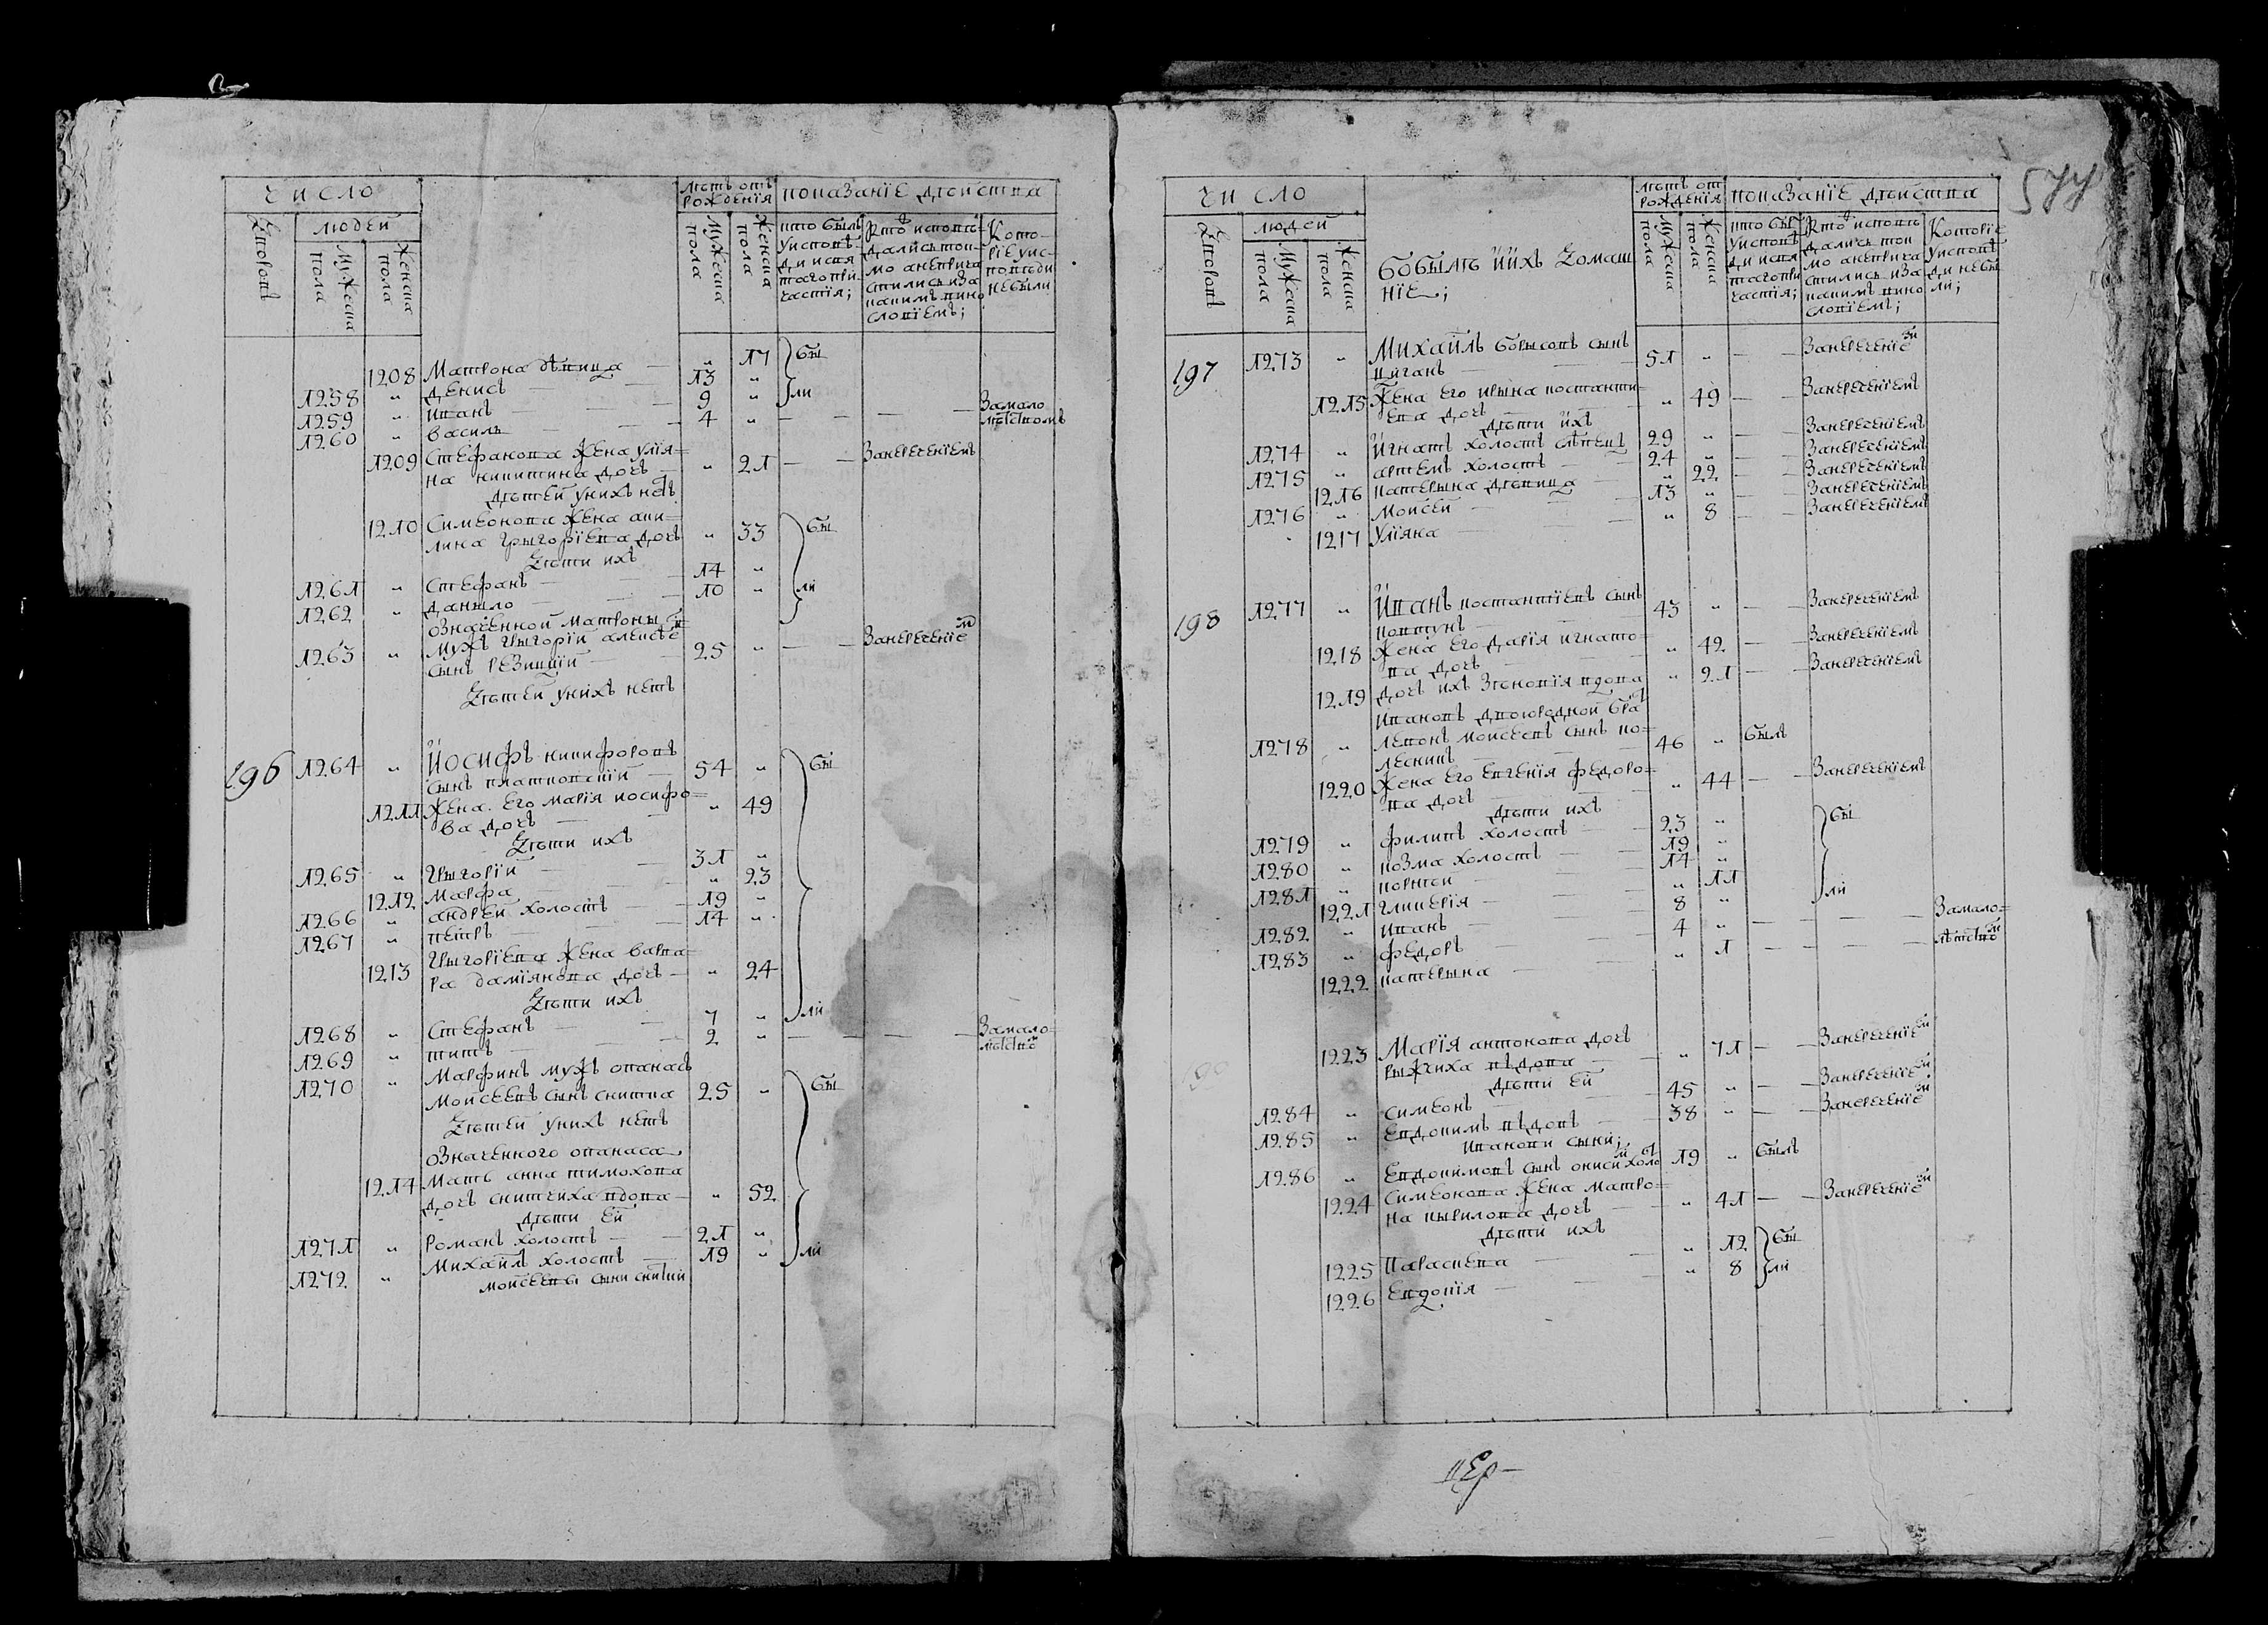 число
людей
Дворовъ
Мужеска пола
Женска пола
лѣтъ отъ рожденія
Мужеска пола
Женска пола
показаніе дѣйства
кто былъ у исповѣди и святаго причастія;
Кто исповѣдались токмо а не причастились и за какимъ винословіемъ;
Которіе у исповѣди не были
1208 Матрона дѣвица — „ 17 бы
1258 „ Денисъ — 13 „ ли
1259 „ иванъ — 9 „
1260 „ василь — 4 „ — — — За мало
лѣтствомъ
1209 Стефанова жена улія=
на никитина дочъ — „ 21 — — За нереченіемъ
Дѣтей у нихъ нѣтъ
1210 Симеонова жена аки=
лина григоріева дочъ „ 33 бы
Дѣти ихъ
1261 „ Стефанъ — 14 „
1262 „ данило — 10 „ ли
означенной матроны
1263 „ мужъ григорій алексѣе
сынъ — 25 „ — — За нереченіемъ
Дѣтей у нихъ нетъ
196 1264 „ Йосифъ никифоровъ
сынъ платковскій — 54 „ бы
1211 Жена его марія иосифо=
ва дочъ — „ 49
Дѣти ихъ
1265 „ григорій — 31 „
1212 Марфа — „ 23
1266 „ андрей холостъ — 19 „
1267 „ петръ — 14 „
1213 григоріева жена варва=
ра даміянова дочъ — „ 24
Дѣти ихъ
1268 „ Стефанъ — 7 „ ли
1269 „ титъ — 2 „ — — — За мало=
лѣтство
1270 „ Марфинъ мужъ опанасъ
моисеевъ сынъ снитка 25 „ бы
Дѣтей у нихъ нетъ
означенного опанаса
1214 Мать анна тимохова
дочъ снитчиха вдова — „ 52
дѣти ей
1271 „ романъ холостъ — 21 „
1272 „ михаилъ холостъ — 19 „ ли
моисеевы сыни
577
число
людей
Дворовъ
Мужеска пола
Женска пола
бобылѣ ййхъ домаш
ніе;
лѣтъ от рожденія
Мужеска пола
Женска пола
показаніе дѣйства
кто бы у исповѣди и святаго причастія;
Кто исповѣдались токмо а не причастились и за какимъ винословіемъ;
Которіе у исповѣди небыли;
197 1273 „ Михайлъ борисовъ сынъ
циганъ — 51 „ — — За нереченіем
1215 Жена его ирина костанти=
ева дочъ — „ 49 — За нереченіемъ
дѣти ихъ
1274 „ Игнатъ холостъ слѣпецъ 29 „ — За нереченіемъ
1275 „ артемъ холостъ — 24 „ — За нереченіемъ
1216 катерина дѣвица — „ 22 — За нереченіемъ
1276 „ Моисей — 13 „ — За нереченіемъ
1217 уліяна — „ 8 — За нереченіемъ
198 1277 „ Иванъ костантіевъ сынъ
ковтунъ — 43 „ — — За нереченіемъ
1218 Жена его дарія игнато=
ва дочъ — „ 42 — За нереченіемъ
1219 дочъ ихъ зѣновія вдова „ 21 — За нереченіемъ
Ивановъ двоюродной братъ
1278 „ левонъ моисеевъ сынъ ко=
лесникъ — 46 „ былъ
1220 Жена его евгенія федоро=
ва дочъ — „ 44 — — За нереченіемъ
Дѣти ихъ
1279 „ филипъ холостъ — 23 „ бы
1280 „ козма холостъ — 19 „
1281 „ корнѣй — 14 „
1221 гликерія — „ 11
1282 „ иванъ — 8 „ ли
1283 „ федоръ — 4 „ — — — За мало=
1222 катерина — „ 1 — — — лѣтство
199 1223 Марія антонова дочъ
рыжчиха вѣдова — „ 71 — За нереченіем
дѣти ей
1284 „ симеонъ — 45 „ — За нереченіем
1285 „ Евдокимъ вѣдовъ — 38 „ — За нереченіем
ивановы сыни;
1286 „ Евдокимовъ сынъ онисим холо 19 „ былъ
1224 Симеонова жена матро=
на кырилова дочъ — „ 41 — За нереченіем
дѣти ихъ
1225 Параскева — „ 12 бы
1226 Евдокія — „ 8 ли
пер—